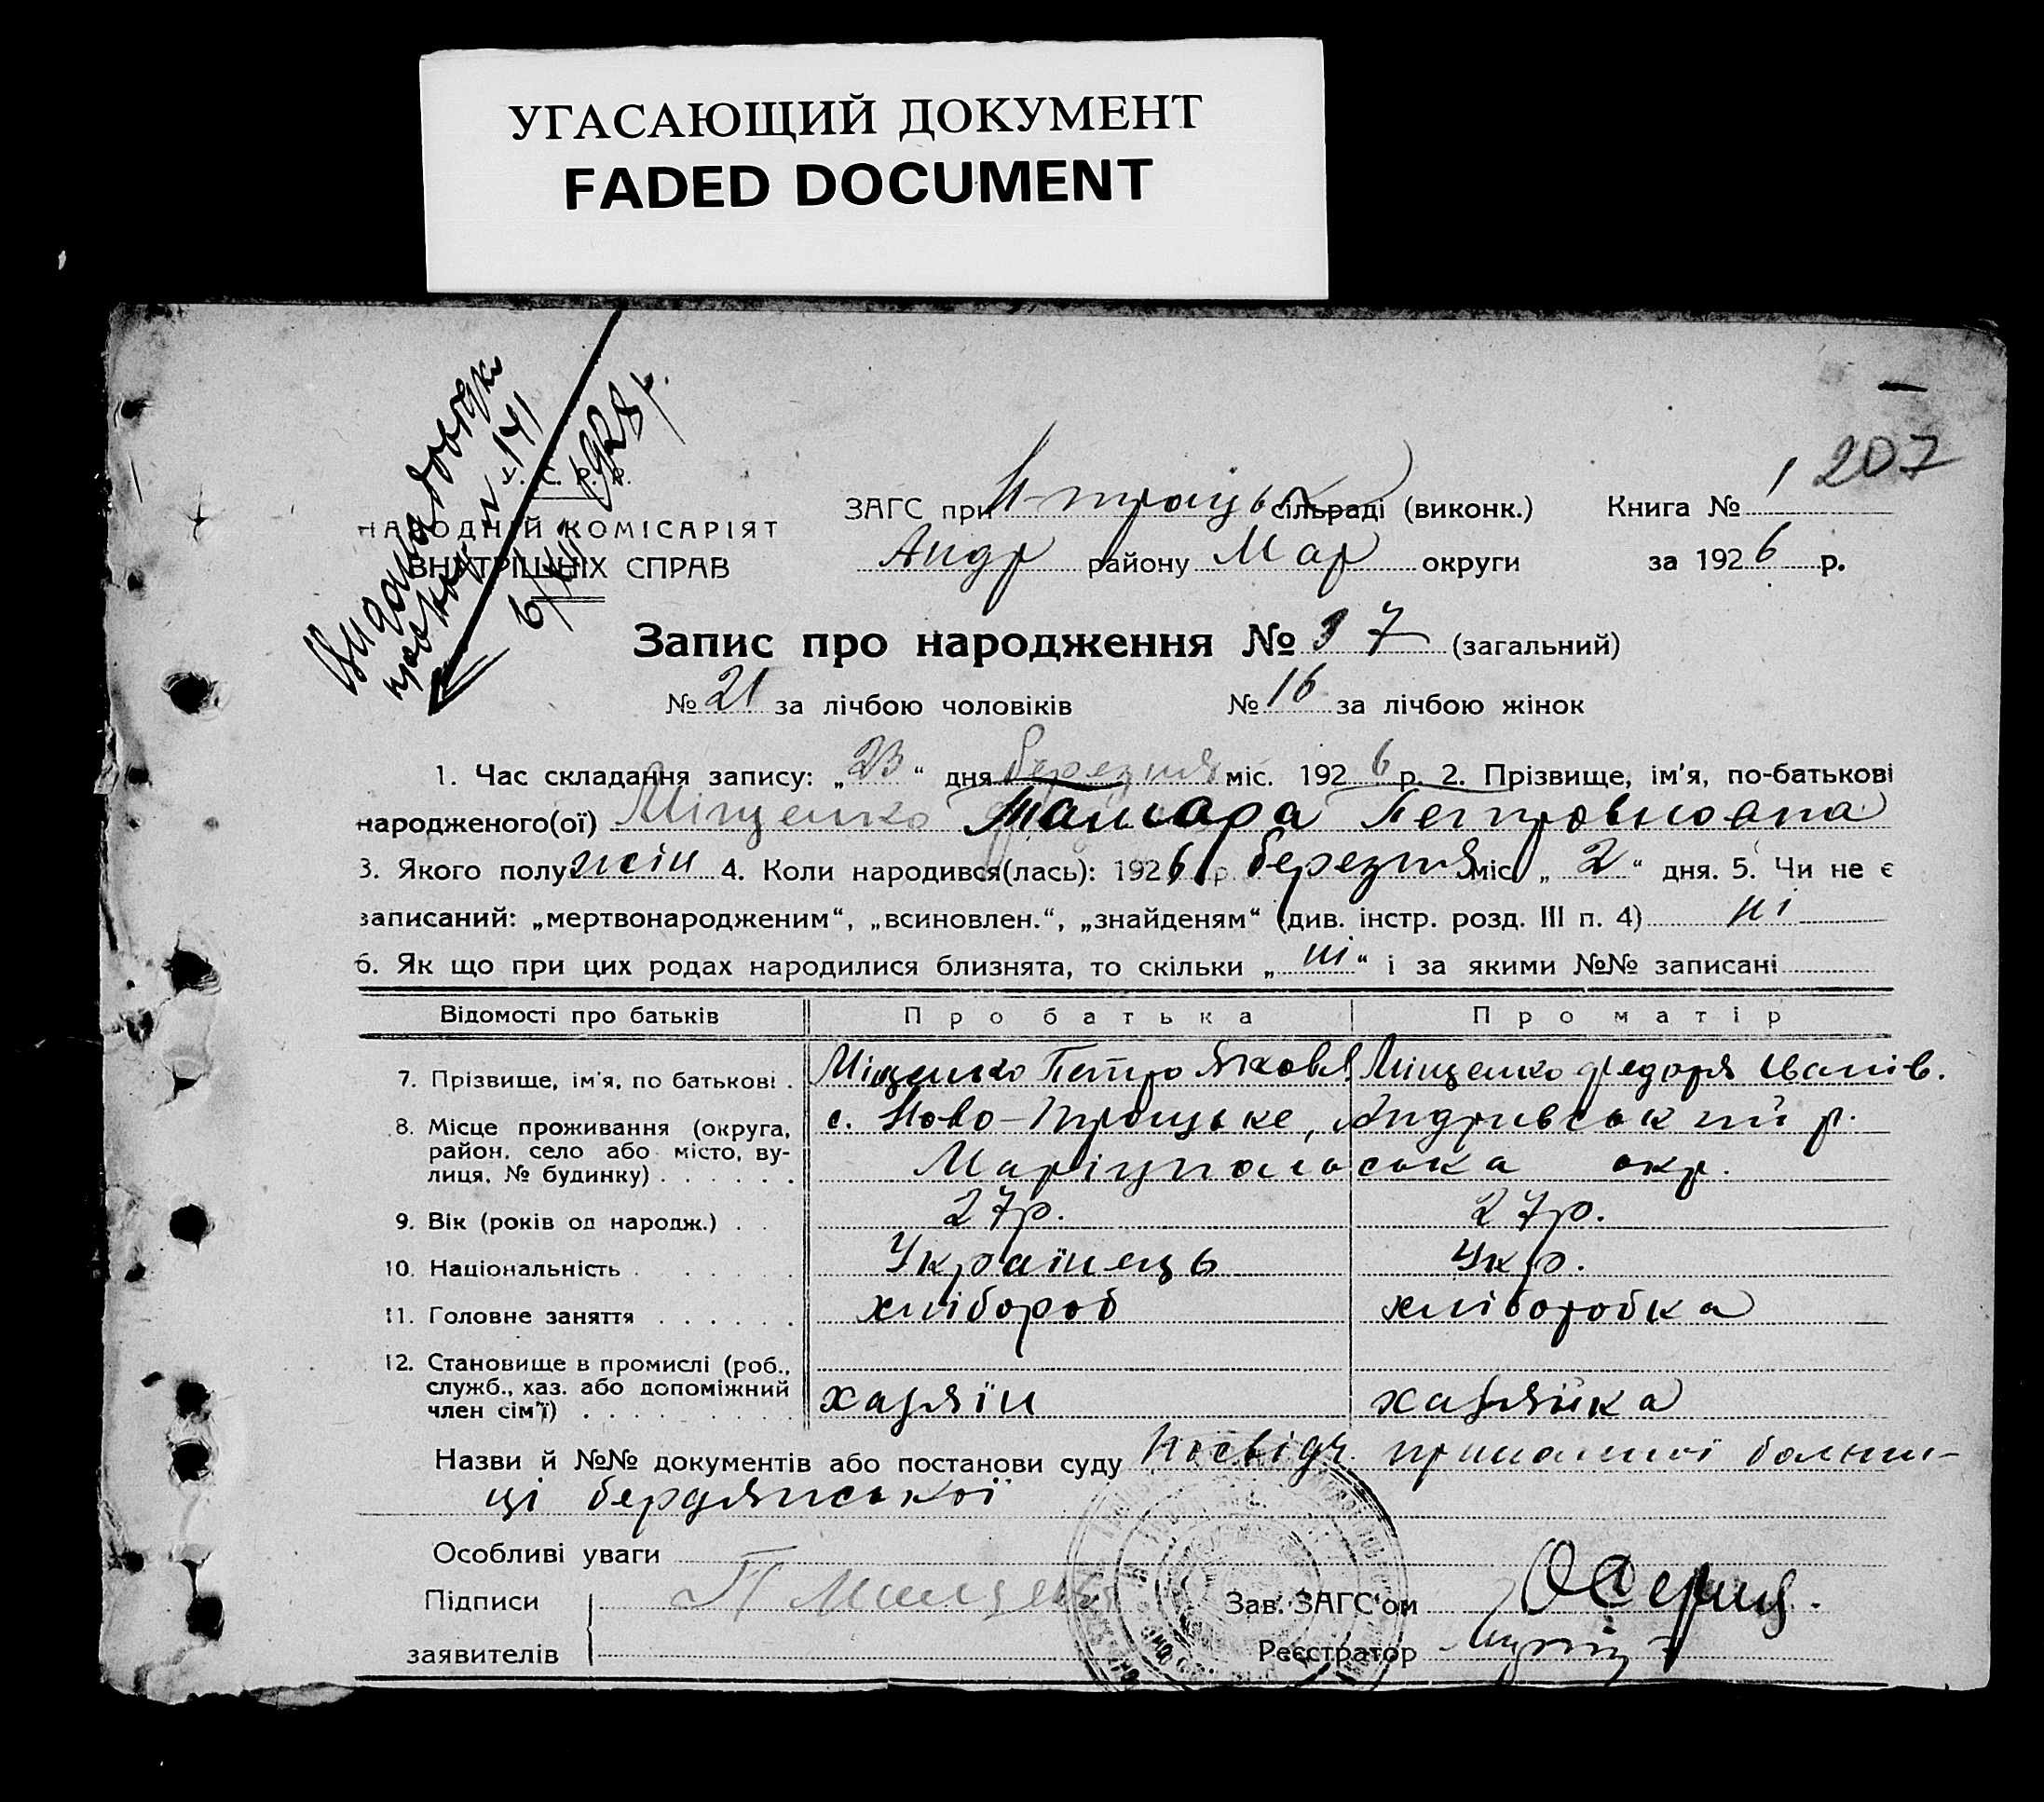 УГАСАЮЩИЙ ДОКУМЕНТ
FADED DOCUMENT
Видана довідка
№ 141
6/XII 1928 р.
207
У. С. Р. Р.
НАРОДНІЙ КОМІСАРІЯТ
ВНУТРІШНІХ СПРАВ
ЗАГС при Н-троцьк сільраді (виконк.) Книга № 1
Андр району Мар округи за 1926 р.
Запис про народження № 37 (загальний)
№ 21 за лічбою чоловіків № 16 за лічбою жінок
1. Час складання запису: „23“ дня березня міс. 1926 р. 2. Прізвище, ім'я, по-батькові
народженого(ої) Міщенко Тамара Петровновна
3. Якого полу жін 4. Коли народився(лась): 1926 р. березня міс. „2“ дня. 5. Чи не є
записаний: „мертвонародженим“, „всиновлен.“, „знайденям“ (див. інстр. розд. III п. 4) ні
6. Як що при цих родах народилися близнята, то скільки „ні“ і за якими №№ записані
Відомості про батьків Про батька Про матір
7. Прізвище, ім'я, по батькові . Міщенко Петро Яковл. Міщенко Федоря Іванів.
8. Місце проживання (округа, район, село або місто, вулиця, № будинку) с. Ново-Троцьке, Андривський р.
Маріупольська окр.
9. Вік (років од народж.) . . 27р. 27р.
10. Національність Українець Укр.
11. Головне заняття хлібороб хліборобка
12. Становище в промислі (роб.,
служб., хаз. або допоміжний
член сім'ї) хазяїн хазяйка
Назви й №№ документів або постанови суду Посвідч. приналеної больни-
ці бердянської
Особливі уваги
Підписи П Мищенко Зав. ЗАГС'ом
заявителів Реєстратор